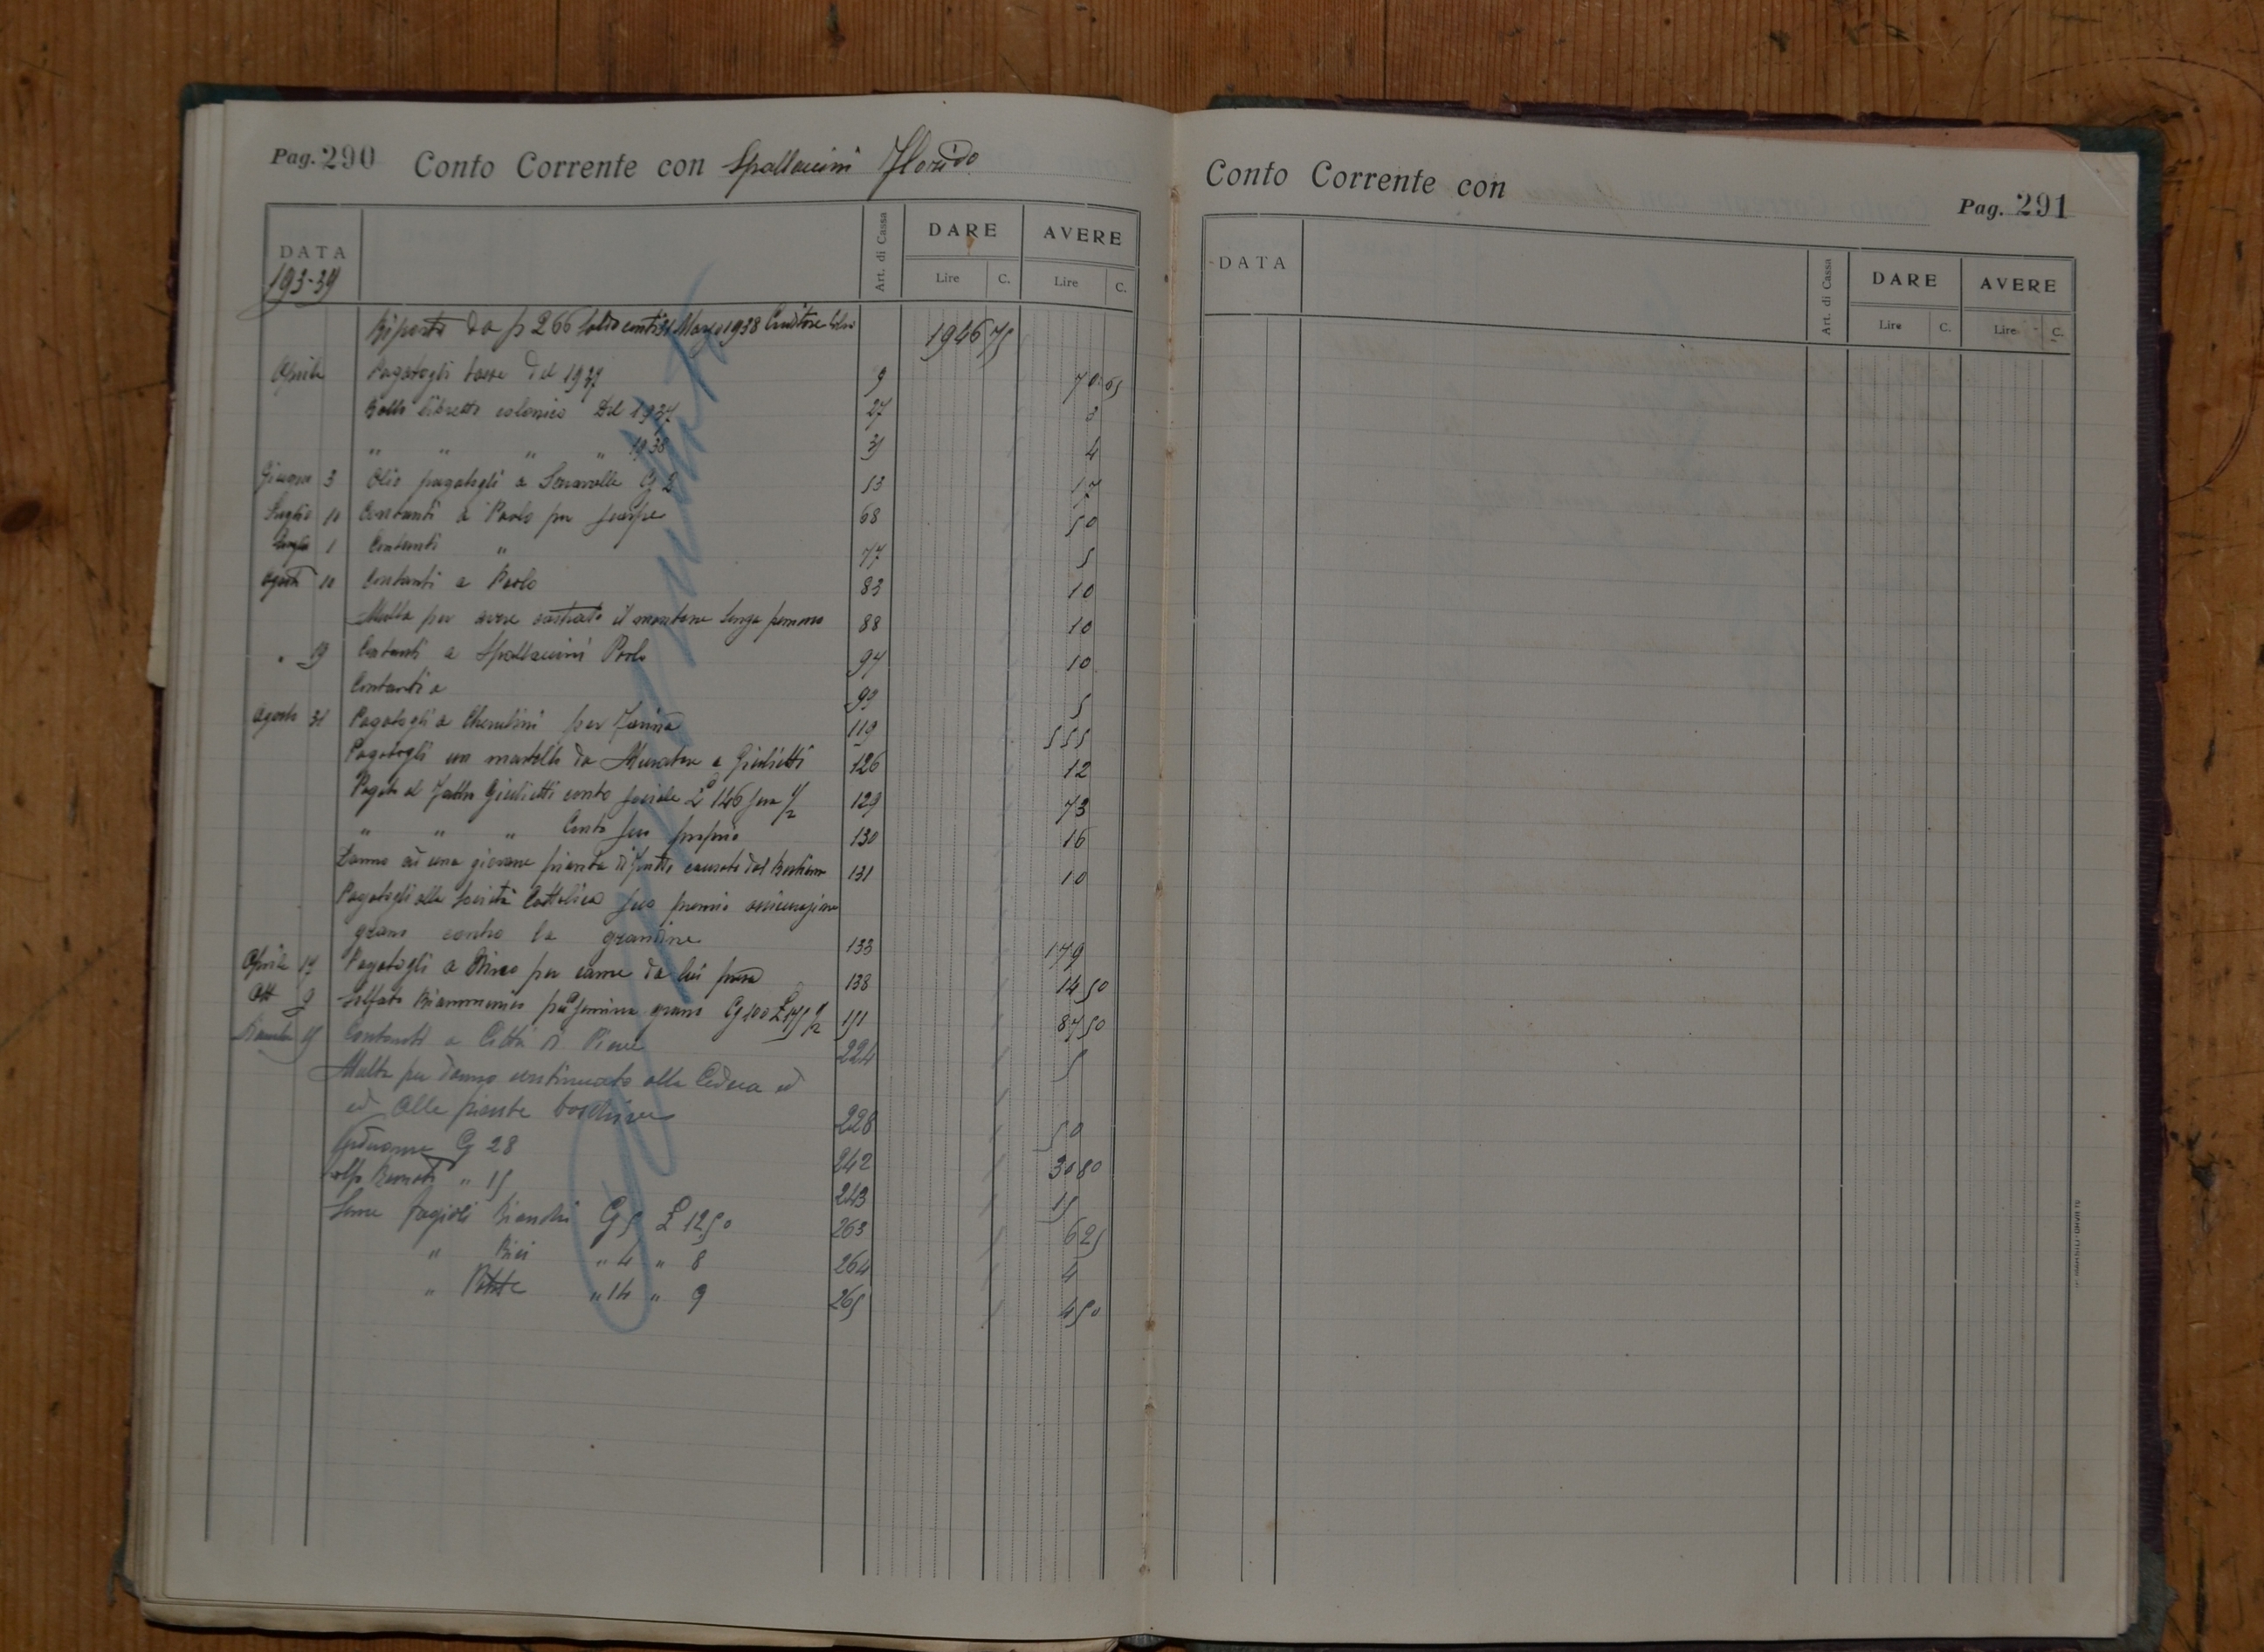 Pag. 290 Conto Corrente con Spallaccini Florido
DATA Art. di Cassa DARE AVERE
Lire C. Lire C.
193-39
Riporto da p 266 Saldo conti 31 Marzo 1938 Creditore 1946 75
Aprile Pagatogli tasse del 1937 9 70 65
Bollo libretto colonico Del 1937 27 3
" " " " 1938 31 4
Giugno 3 Olio pagatogli a G 2 53 17
Luglio 10 Contanti a Paolo per scarpe 68 50
Luglio 1 Contanti " 77 5
Agosto 10 Contanti a Paolo 83 10
Multa per avere castrato il montone senza permesso 88 10
" 19 Contanti a Spallaccini Paolo 94 10
Contanti a 99 5
Agosto 31 Pagatogli a Cherubini per Farina 119 555
Pagatogli un martello da Muratore a Giulietti 126 12
Pagato al Fabbro Giulietti conto sociale L 146 sua 1/2 129 73
" " " Conto suo proprio 130 16
Danno ad una giovane pianta di frutto causato dal Bestiame 131 10
Pagatogli alla Società Cattolica suo premio assicurazione
grano contro la grandine 133 179
Aprile 17 Pagatogli a Primo per carne da lui presa 138 14 50
Ott 9 Solfato Biammonico per semina grano Cg 100 £ 175 1/2 151 87 50
15 Contanti a Città d Pieve 224 5
Multa per danno continuato alla Cedua ed
ed alle piante boschive 228 50
G 28 242 30 80
" 15 243 15
Seme fagioli Bianchi G 5 £ 12.50 263 6 25
" " 4 " 8 264 4
" Patate " 14 " 9 265 4 50
Conto Corrente con Pag. 291
DATA Art. di Cassa DARE AVERE
Lire C. Lire C.